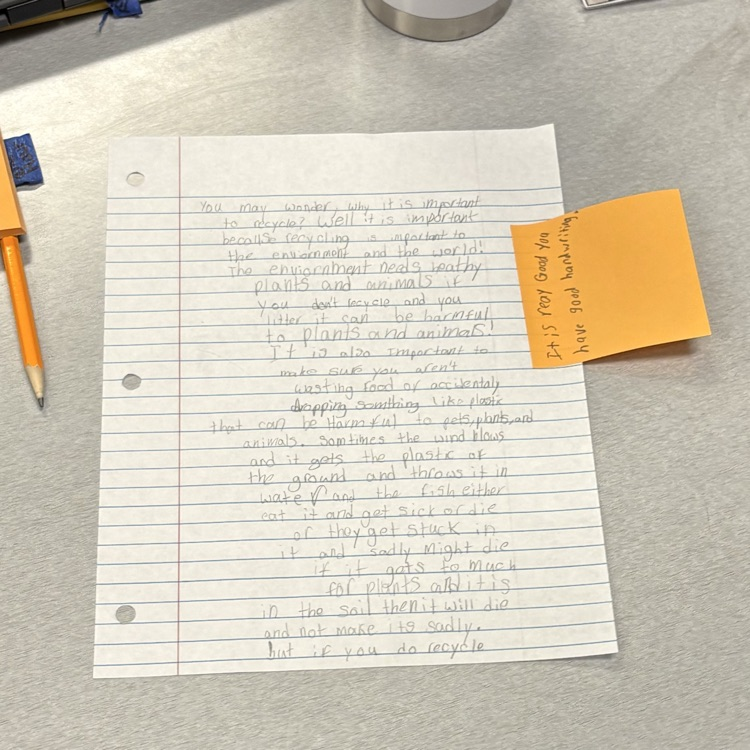 You may wonder, why it is important
to recycle? Well it is important
because recycling is important to
the enviornment and the world!
The enviornment needs leathy
plants and animals if
you don't recycle and you
litter it can be harmful
to plants and animals!
It is also important to
make sure you aren't
wasting food or accidentaly
dropping somthing like plastic
that can be Harmful to pets, plants, and
animals. Somtimes the wind blows
and it gets the plastic of
the ground and throws it in
water and the fish either
eat it and get sick or die
or they get stuck in
it and sadly might die
if it gets to much
for plants and it is
in the soil then it will die
and not make it sadly.
but if you do recycle
It is realy Good you
have good handwriting.